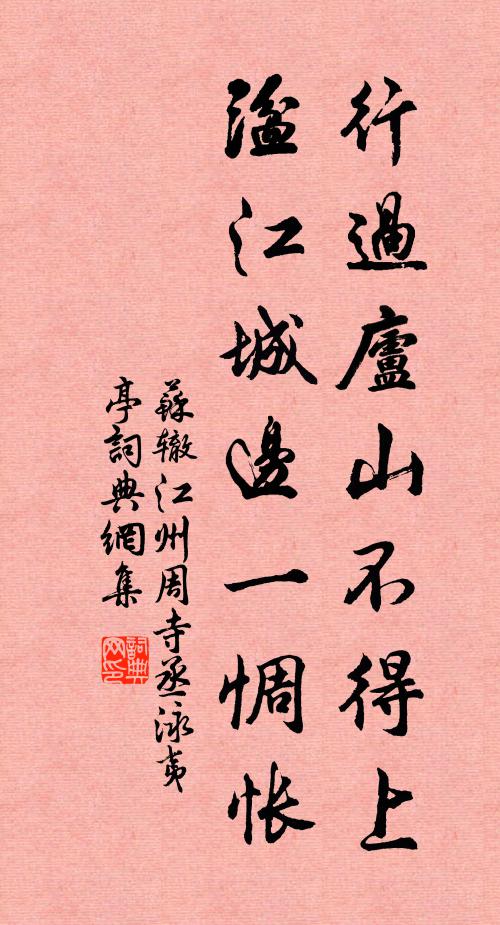 行過廬山不得上
湓江城邊一惆悵
蘇轍江州周寺丞泳夷
亭詞典網集
詞典
网印